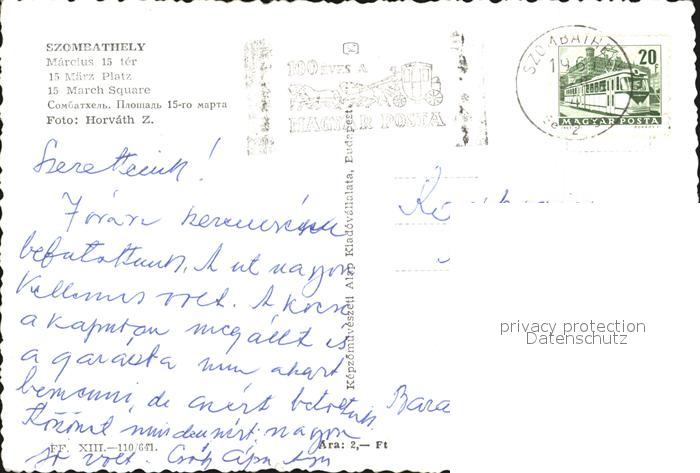 SZOMBATHELY
Március 15 tér
15 März Platz
15 March Square
Сомбатхель. Площадь 15-го марта
Foto: Horváth Z.
100 ÉVES A
MAGYAR POSTA
SZOMBATHE
20 f
MAGYAR POSTA
Szeretteink!
befutottunk. A út nagyon
kellemes volt. A kocsi
a kapuban megállt is
a garásba nem akart
bemenni, de azért betoltuk
Köszönet mindenért nagyon
jó volt. Csók
FF. XIII.—110/641.
Ára: 2,— Ft
Képzőművészeti Alap Kiadóvállalata, Budapest
Bara
privacy protection
Datenschutz